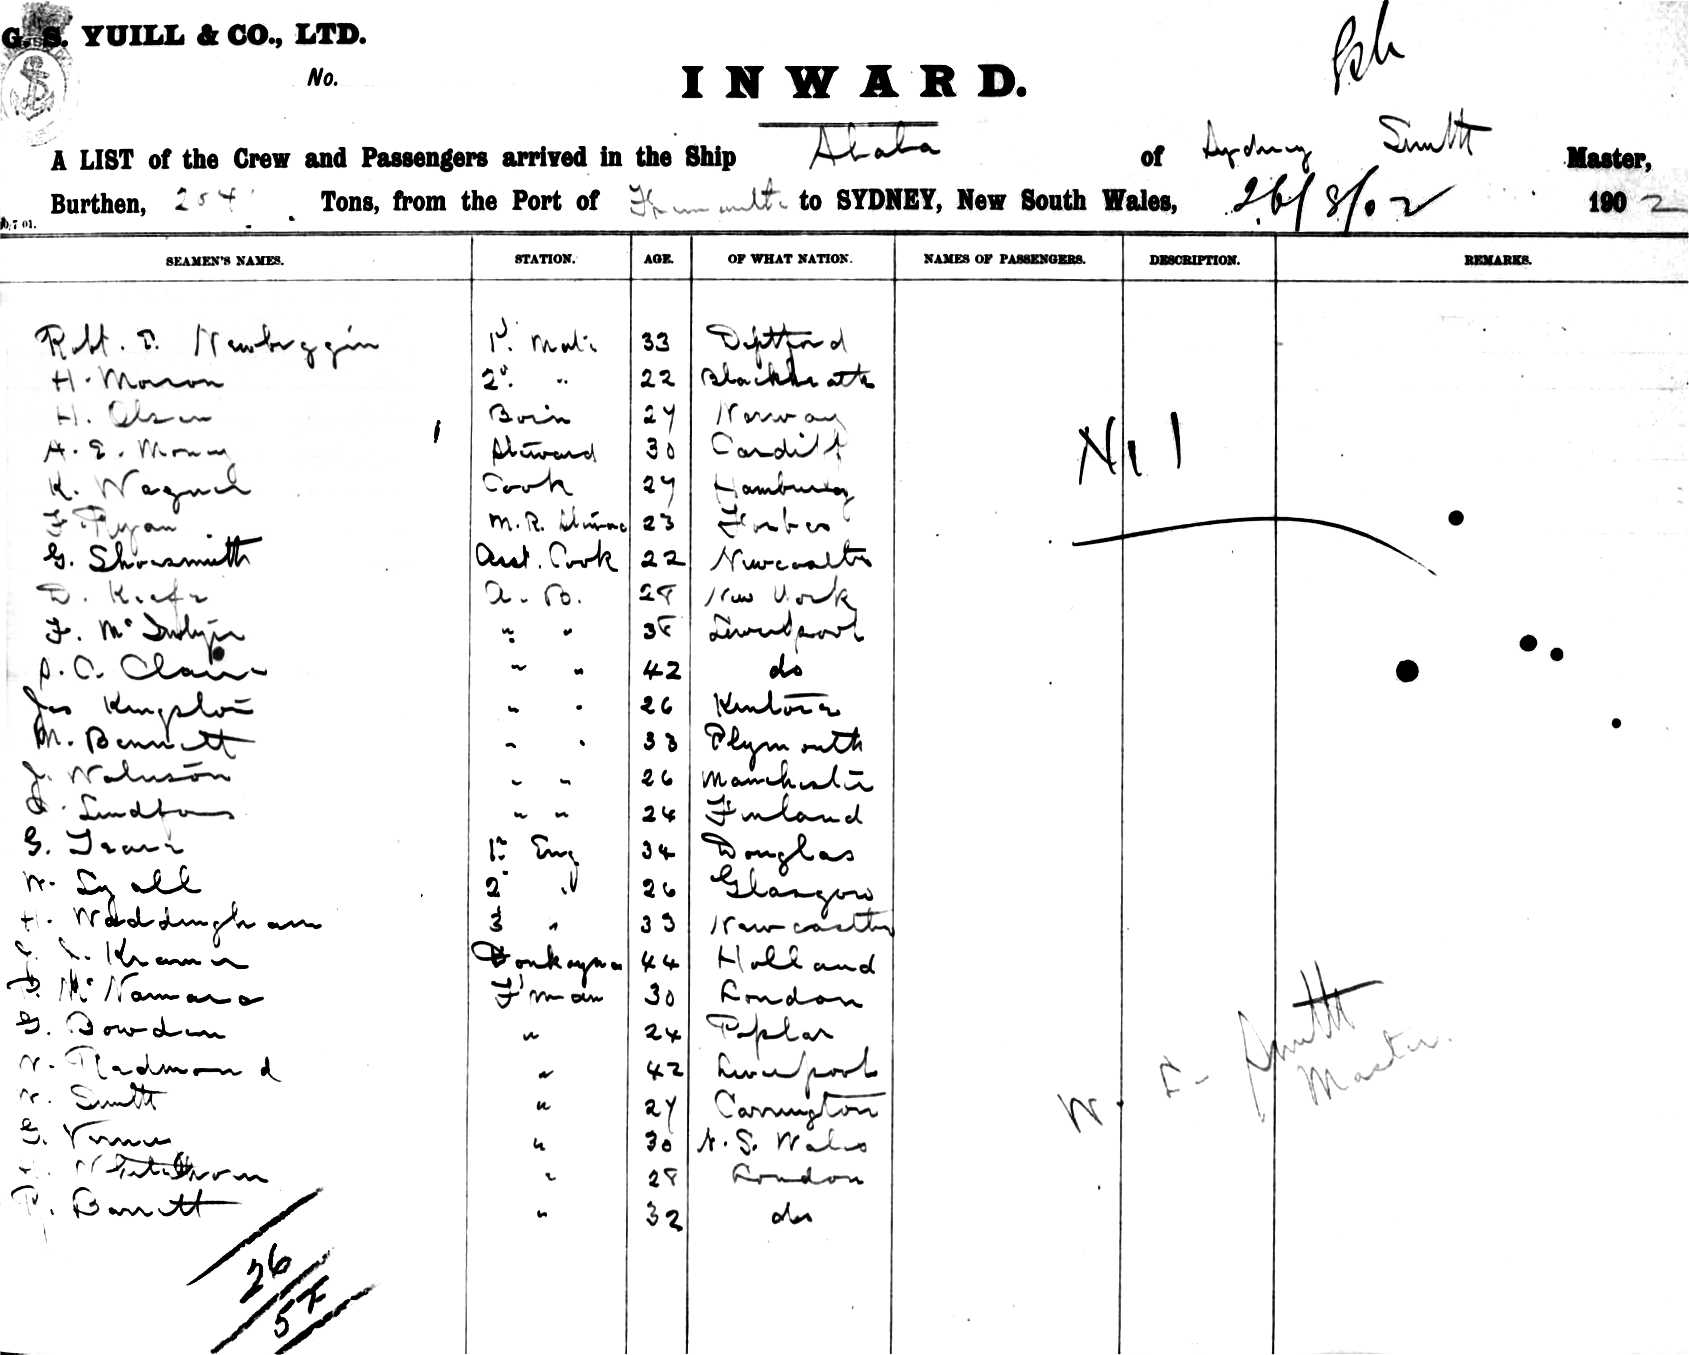 G. S. YUILL & CO., LTD.
No.
INWARD.
A LIST of the Crew and Passengers arrived in the Ship Ababa of Sydney Smith Master,
Burthen, 254 Tons, from the Port of to SYDNEY, New South Wales, 26/8/02 1902
SEAMEN'S NAMES. STATION. AGE. OF WHAT NATION. NAMES OF PASSENGERS. DESCRIPTION. REMARKS.
Robt. E. Newbiggin 1st. Mate 33 Deptford
H. Moron 2d. " 22 Blackheath
H. Olsen Bosin 27 Norway
A. E. Steward 30 Cardiff
Nil
K. Wagner Cook 27 Hamburg
F. Ryan M. R. Steward 23 Forbes
G. Shoesmith Asst. Cook 22 Newcastle
D. Keefe A. B. 28 New York
F. " " 38 Liverpool
C. " " 42 do
Jas Kingston " " 26
M. Bennett " " 33 Plymouth
J. " " 26 Manchester
" " 24 Finland
G. 1st Eng 34 Douglas
W. Lyall 2 " 26 Glasgow
H. Waddingham 3 " 33 Newcastle
Kramer Donkeyman 44 Holland
McNamara F'man 30 London
G. Bowden " 24 Poplar
W. Radmond " 42 Liverpool
W. Smith " 27 Carrington
G. " 30 N. S. Wales
" 28 London
P. Barrett " 32 do
W. E. Smith
Master.
26